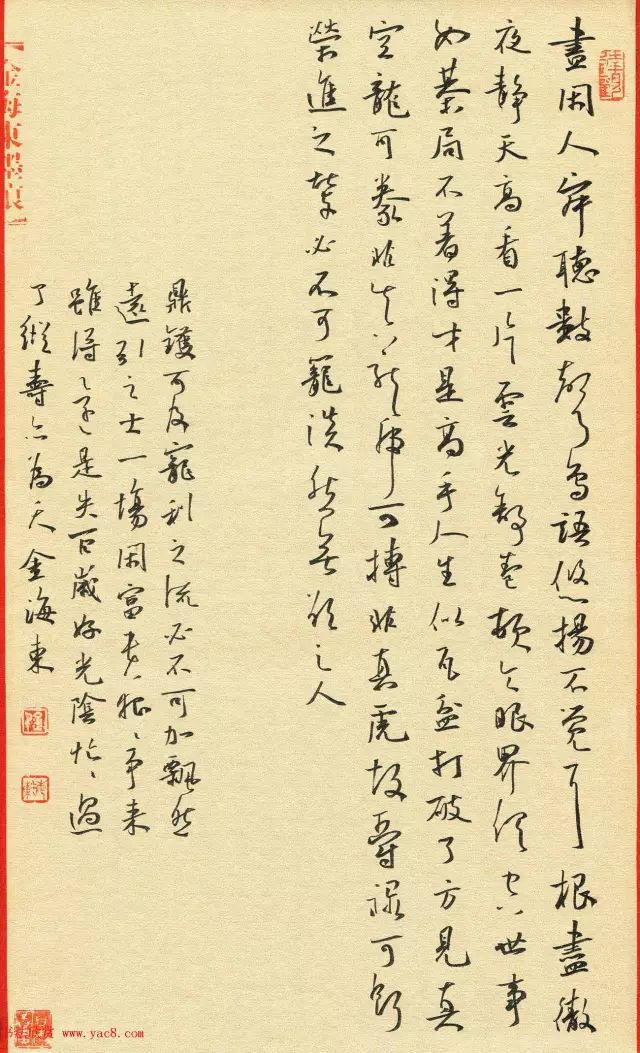 盡閑人寂聽數聲鳥語悠揚不覺耳根盡徹
夜靜天高看一片雲光舒卷頓令眼界俱空世事
如棊局不着得才是高手人生似瓦盆打破了方見真
空龍可豢非真龍虎可搏非真虎故爵祿可餌
榮進之輩必不可籠淡然無欲之人
鼎鑊可及寵利之流必不可加飄然
遠引之士一場閑富貴狠狠爭來
雖得還是失百歲好光陰忙忙過
了縱壽亦為夭金海東
金海東墨痕
书法欣赏 www.yac8.com